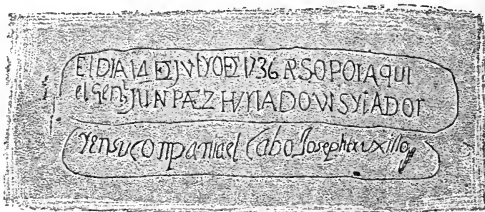 El DIA 14 DE JULYO DE 1736 PASO POr AQUI
el Genl JUN PAEZ HVrTADO VISyTADOr
Y en su companiael Cabo Joseph truxillo